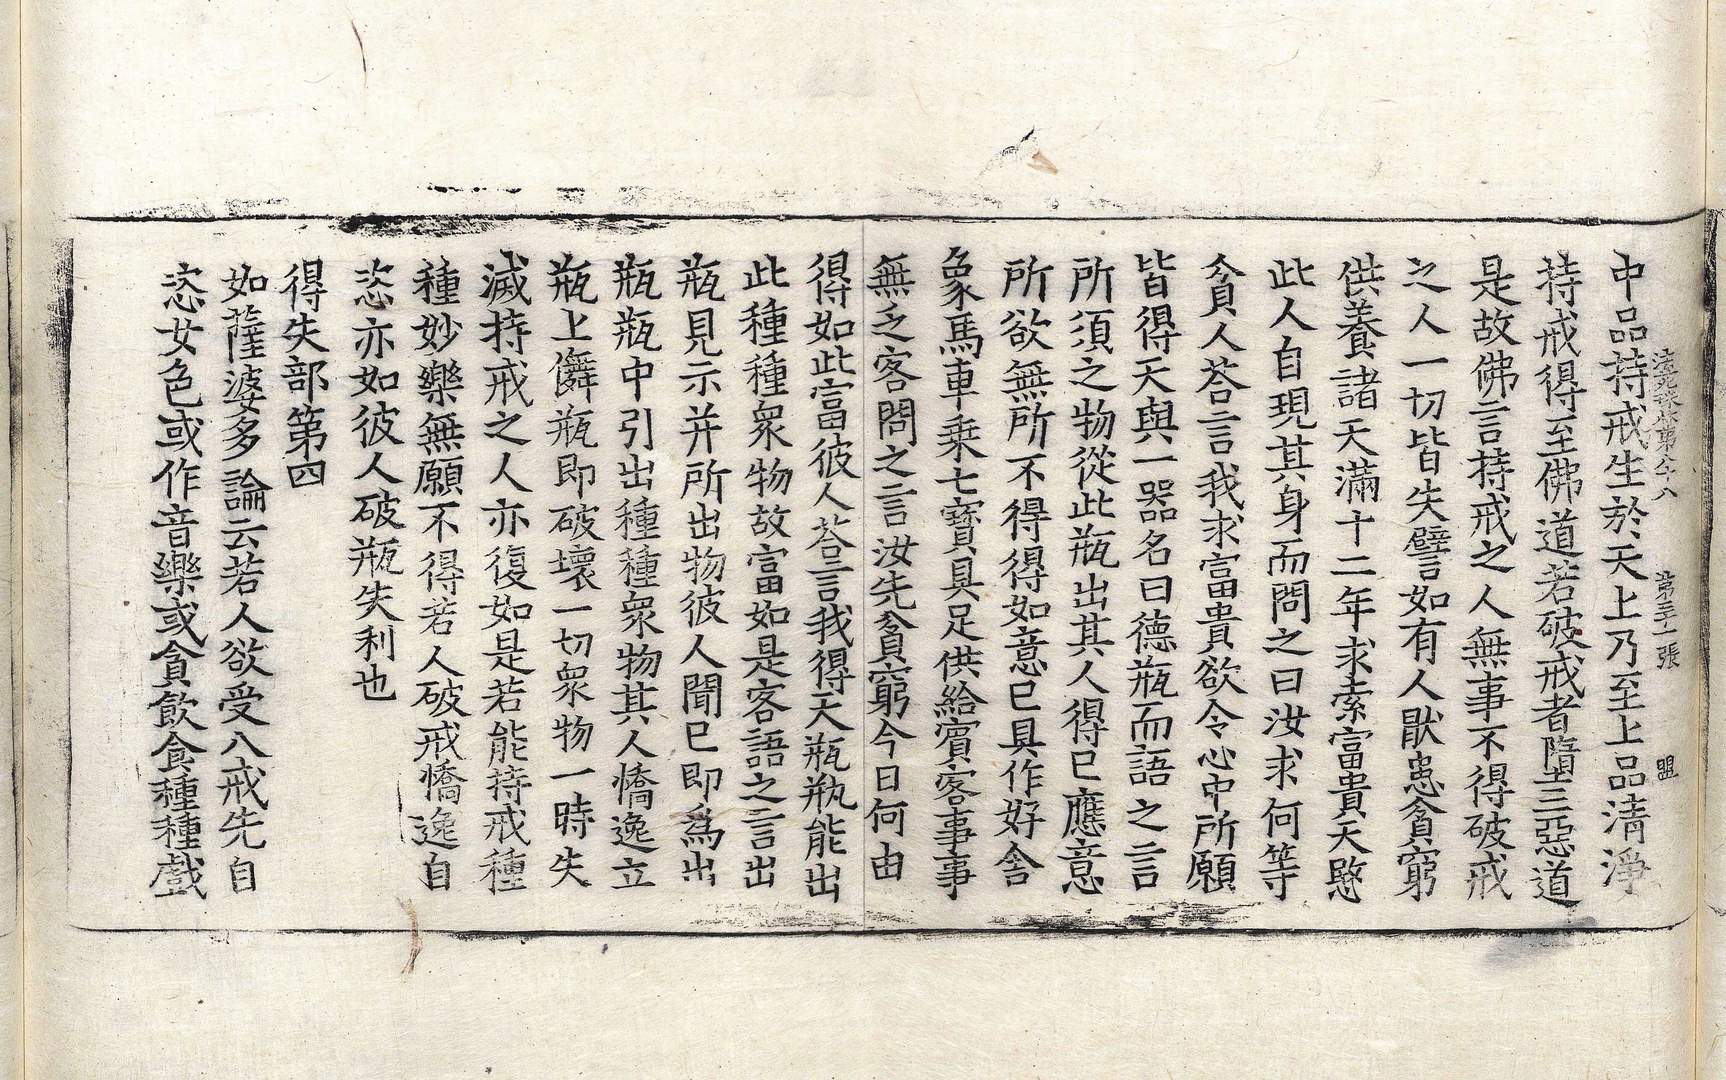 法苑珠林第八十八　第三十一張　盟
中品持戒生於天上乃至上品清淨
持戒得至佛道若破戒者墮三惡道
是故佛言持戒之人無事不得破戒
之人一切皆失譬如有人猒患貧窮
供養諸天滿十二年求索富貴天愍
此人自現其身而問之曰汝求何等
貧人荅言我求富貴欲令心中所願
皆得天與一器名曰德瓶而語之言
所須之物從此瓶出其人得已應意
所欲無所不得得如意已具作好舍
象馬車乗七寳具足供給賓客事事
無乏客問之言汝先貧窮今日何由
得如此富彼人荅言我得天瓶瓶能出
此種種衆物故富如是客語之言出
瓶見示并所出物彼人聞已即爲出
瓶瓶中引出種種衆物其人憍逸立
瓶上儛瓶即破壞一切衆物一時失
滅持戒之人亦復如是若能持戒種
種妙樂無願不得若人破戒憍逸自
恣亦如彼人破瓶失利也
得失部第四
如薩婆多論云若人欲受八戒先自
恣女色或作音樂或貪飲食種種戲